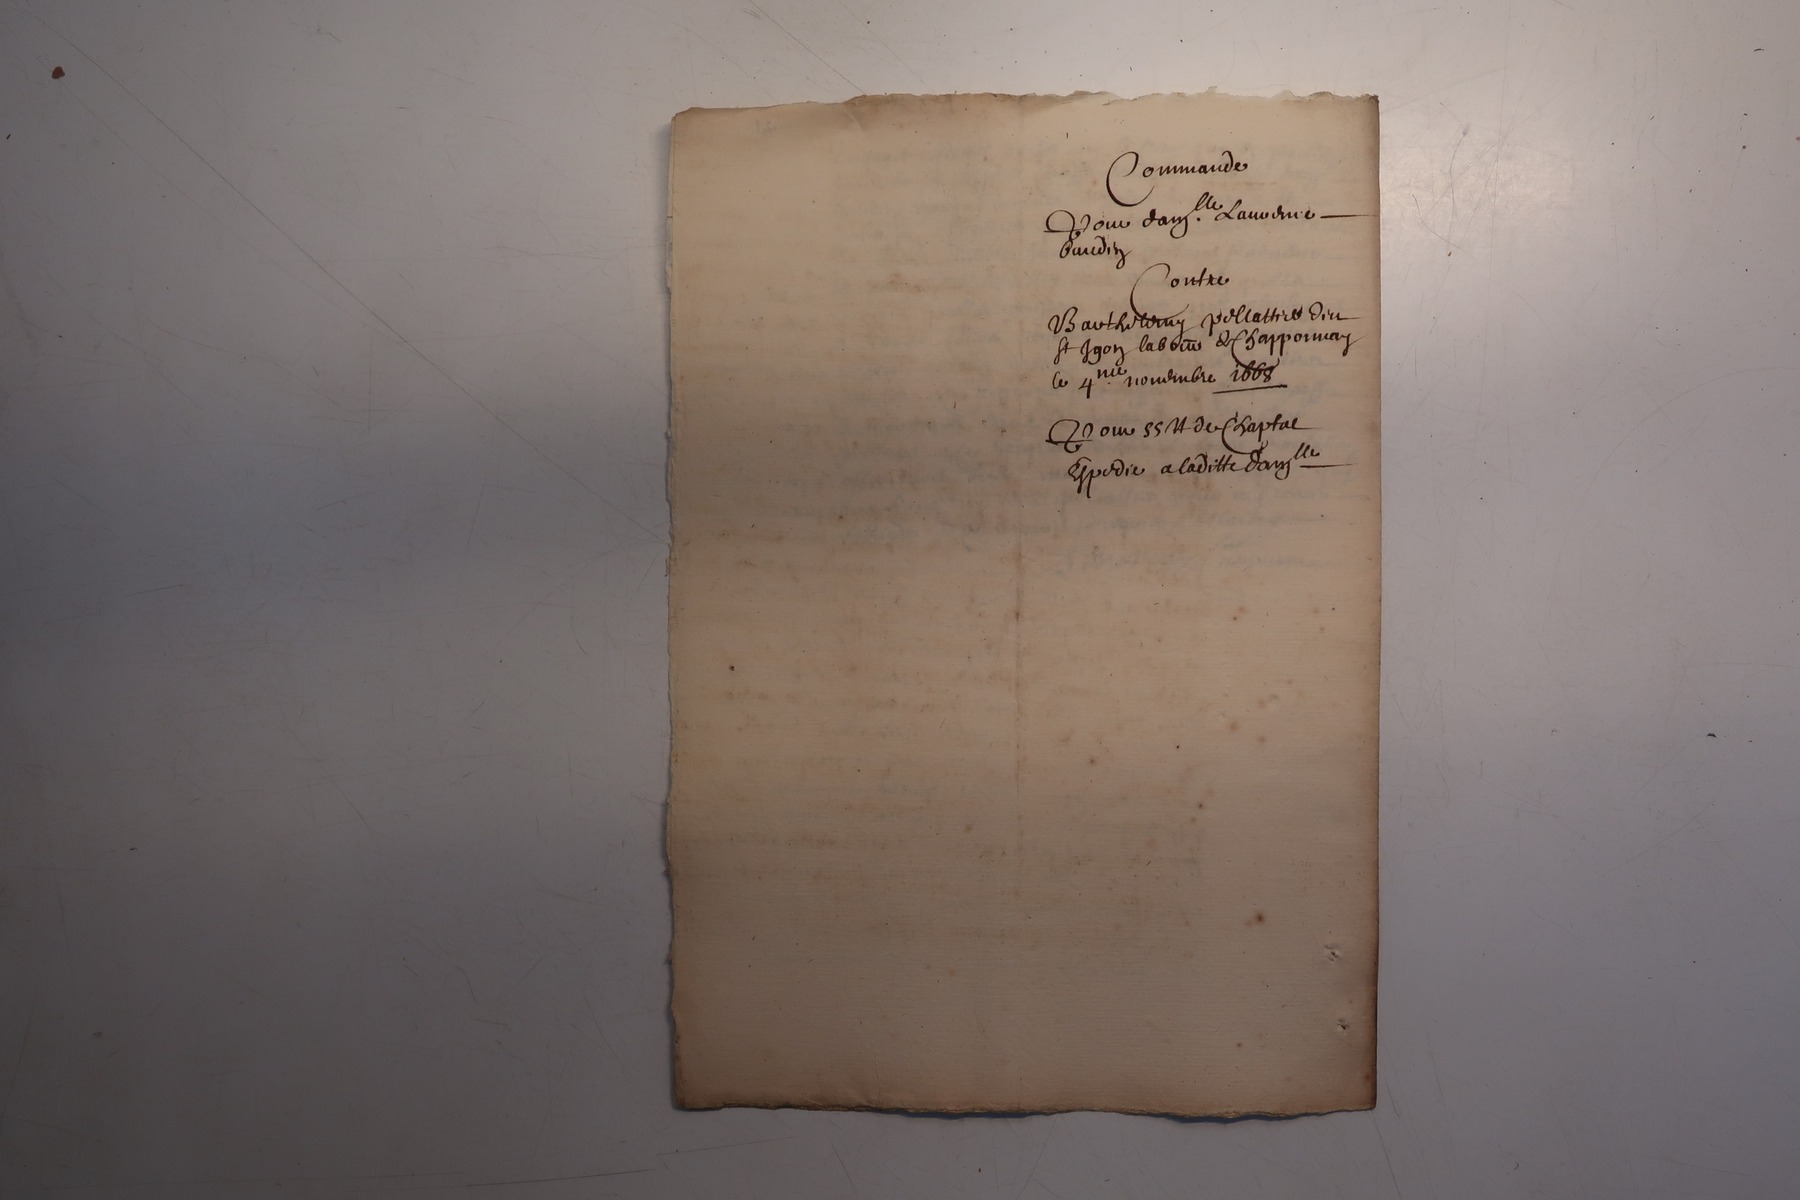 Commande
Pour dam.lle Laurence
baudin
Contre
Barthelemy pellattier dict
st Jgon labour de Chapponnay
le 4me novembre 1668
Pour 55 tt de Chaptal
Expedie a laditte damlle